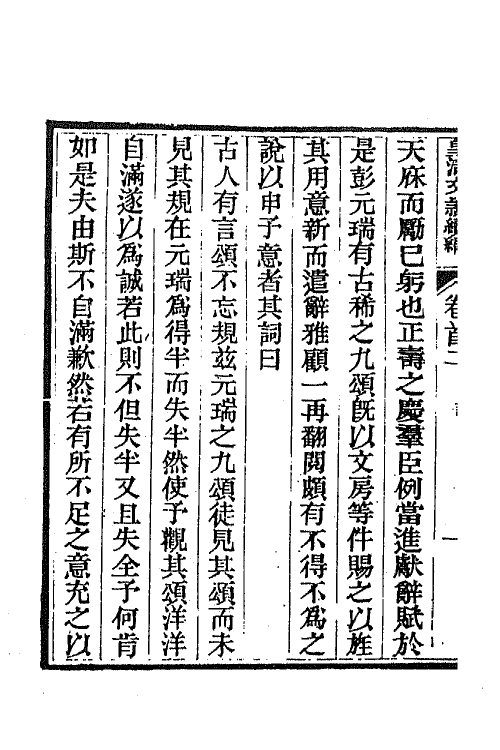 皇清文潁續編 卷首二
天庥而勵己躬也正壽之慶羣臣例當進獻辭賦於
是彭元瑞有古稀之九頌旣以文房等件賜之以旌
其用意新而遣辭雅顧一再翻閱頗有不得不爲之
說以申予意者其詞曰
古人有言頌不忘規茲元瑞之九頌徒見其頌而未
見其規在元瑞爲得半而失半然使予觀其頌洋洋
自滿遂以爲誠若此則不但失半又且失全予何肯
如是夫由斯不自滿歉然若有所不足之意充之以